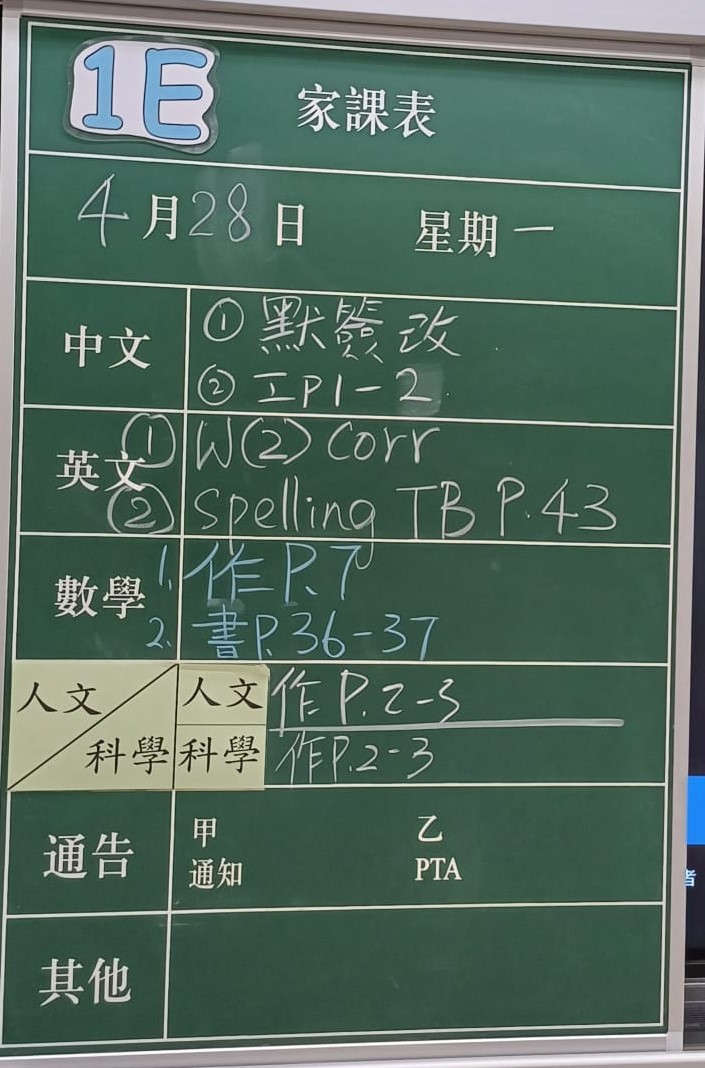 1E 家課表
4月28日 星期一
中文 ① 默簽改
② 工P1-2
英文 ① W(2) Corr
② Spelling TB P.43
數學 1. 作P.7
2. 書P.36-37
人文 科學 人文 作P.2-3
科學 作P.2-3
通告 甲 乙
通知 PTA
其他
者